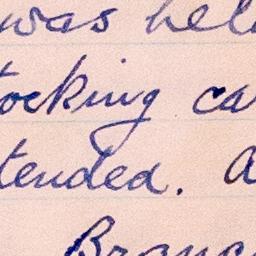 was hel
tocking ca
tended. A
Branc